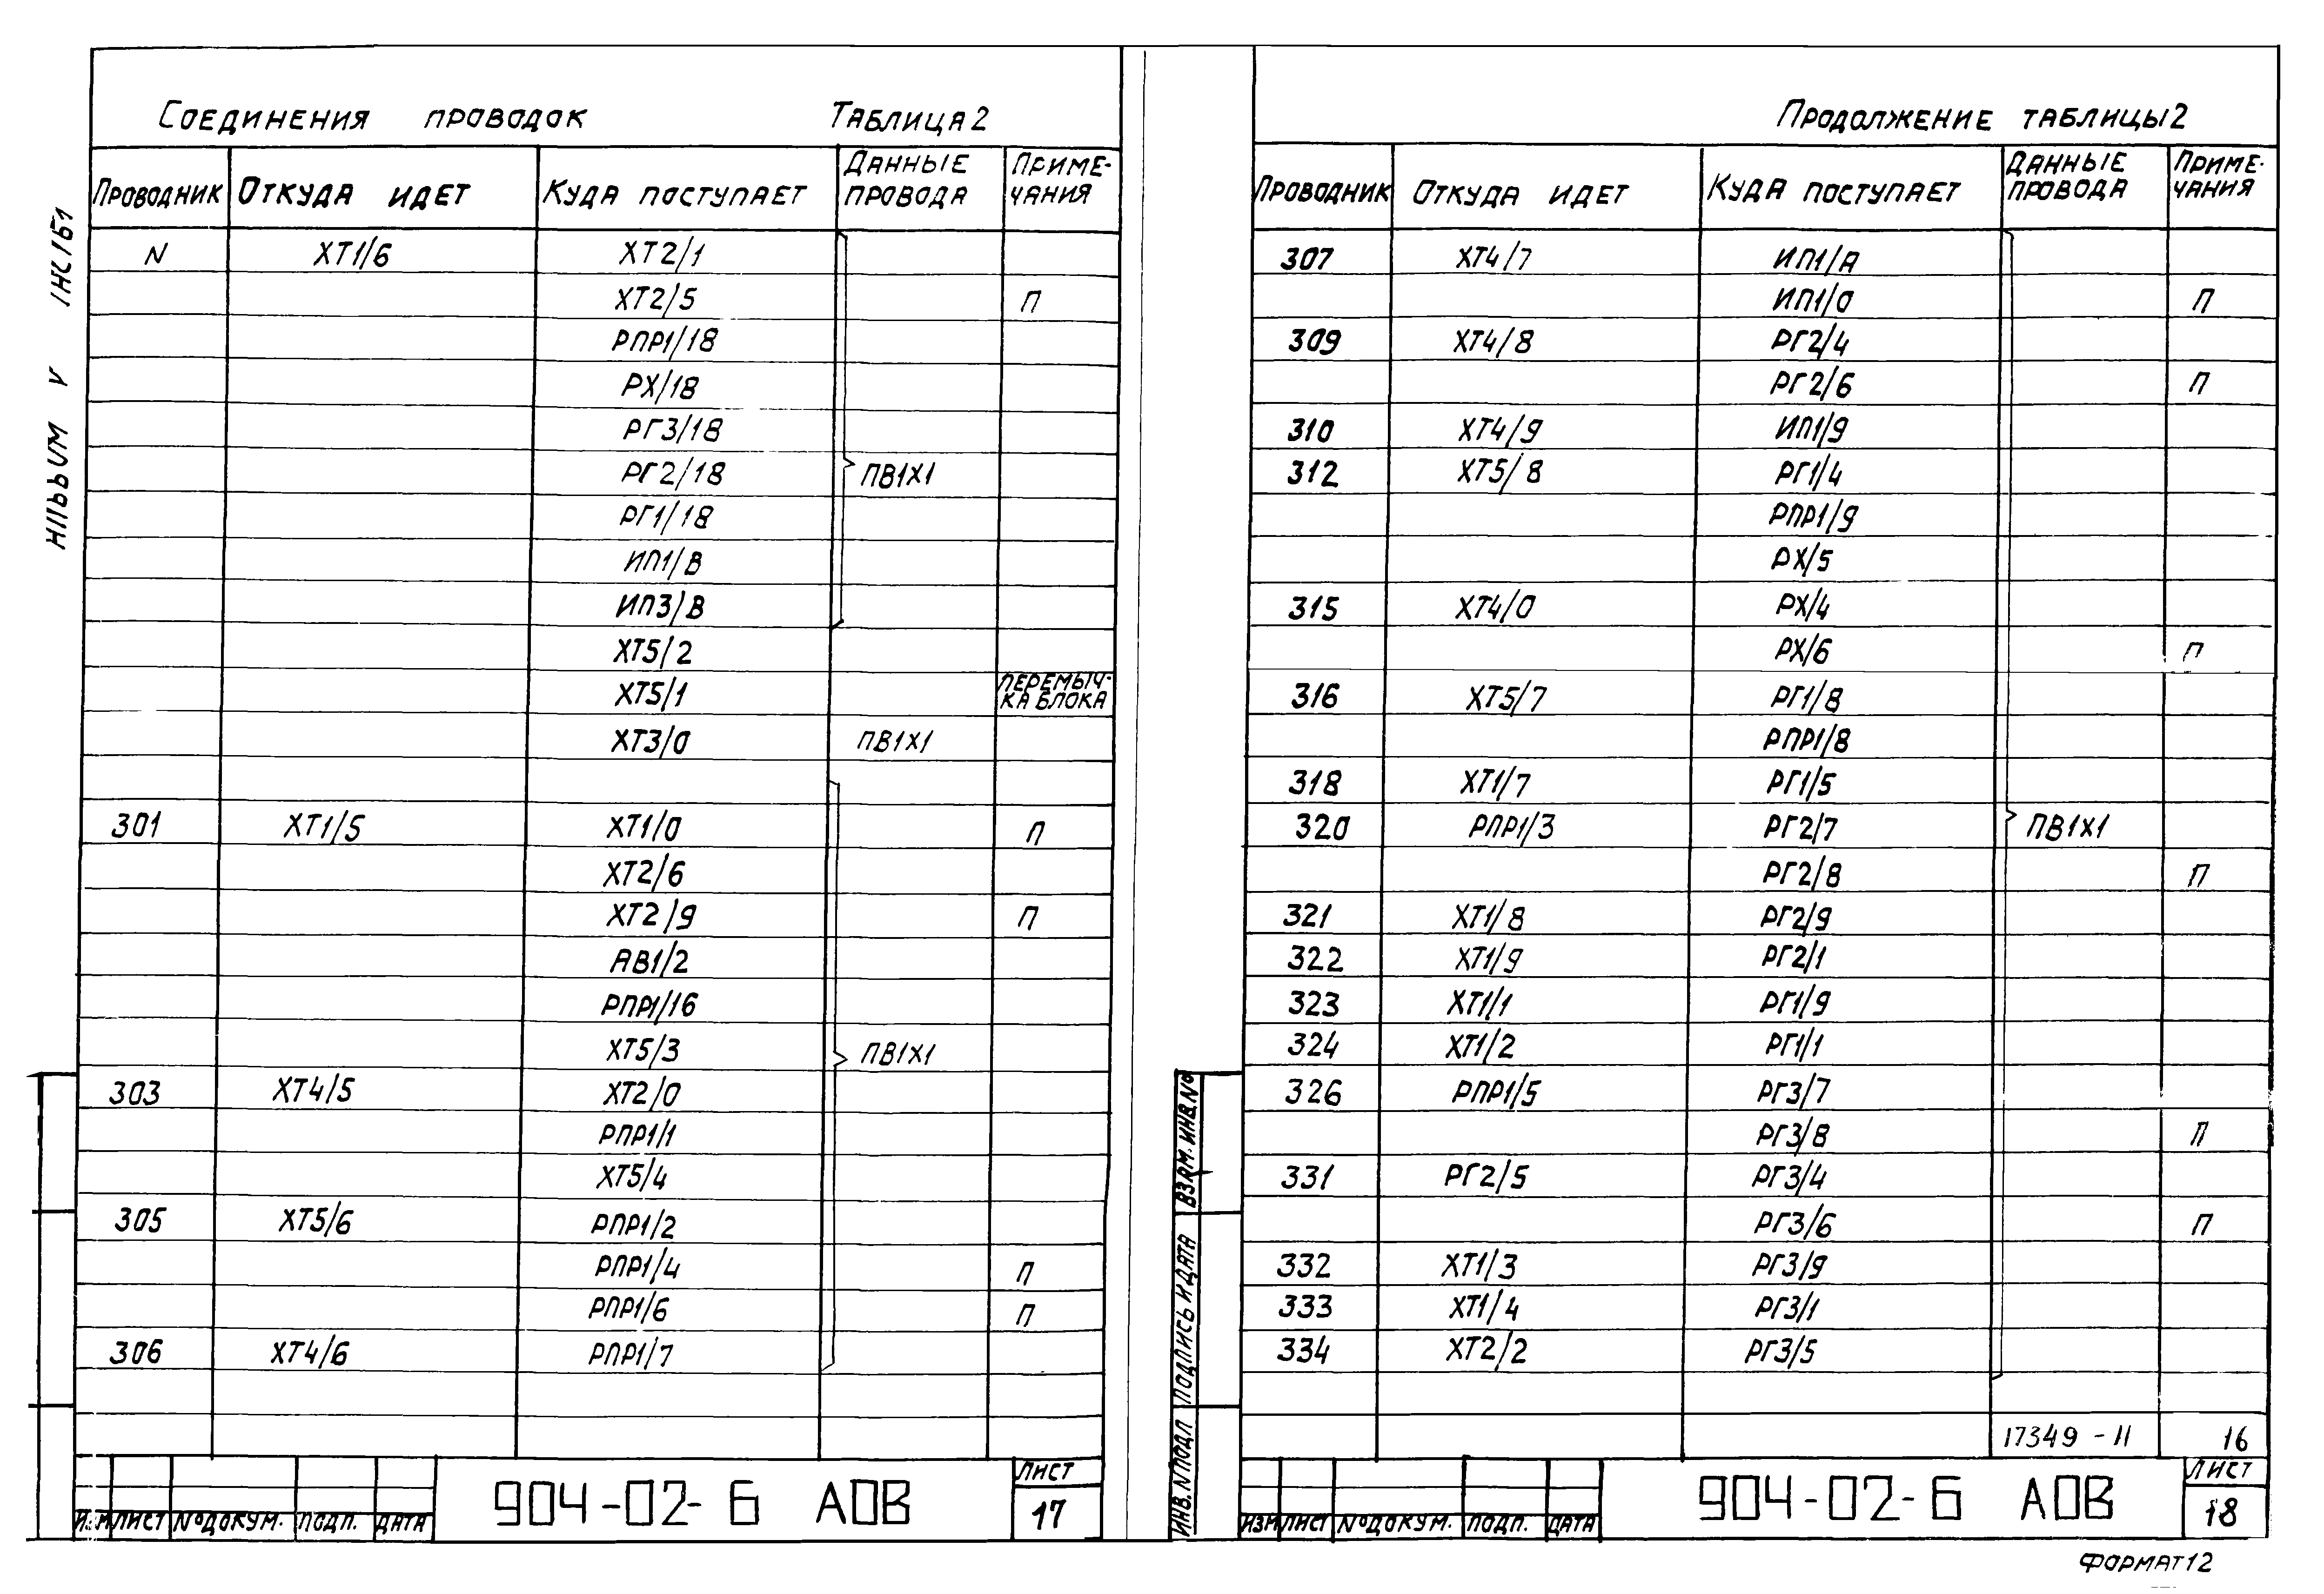 Соединения проводок Таблица 2
Проводник Откуда идет Куда поступает Данные провода Примечания
N ХТ1/6 ХТ2/1
ХТ2/5 П
РПР1/18
РХ/18
РГ3/18
РГ2/18 ПВ1Х1
РГ1/18
ИП1/В
ИП3/В
ХТ5/2
ХТ5/1 ПЕРЕМЫЧ-КА БЛОКА
ХТ3/0 ПВ1Х1
301 ХТ1/5 ХТ1/0 П
ХТ2/6
ХТ2/9 П
АВ1/2
РПР1/16
ХТ5/3 ПВ1Х1
303 ХТ4/5 ХТ2/0
РПР1/1
ХТ5/4
305 ХТ5/6 РПР1/2
РПР1/4 П
РПР1/6 П
306 ХТ4/6 РПР1/7
ИЗМ ЛИСТ №ДОКУМ. ПОДП. ДАТА
904-02-6 АОВ
ЛИСТ
17
Продолжение таблицы 2
Проводник Откуда идет Куда поступает Данные провода Примечания
307 ХТ4/7 ИП1/А
ИП1/0 П
309 ХТ4/8 РГ2/4
РГ2/6 П
310 ХТ4/9 ИП1/9
312 ХТ5/8 РГ1/4
РПР1/9
РХ/5
315 ХТ4/0 РХ/4
РХ/6 П
316 ХТ5/7 РГ1/8
РПР1/8
318 ХТ1/7 РГ1/5
320 РПР1/3 РГ2/7 ПВ1Х1
РГ2/8 П
321 ХТ1/8 РГ2/9
322 ХТ1/9 РГ2/1
323 ХТ1/1 РГ1/9
324 ХТ1/2 РГ1/1
326 РПР1/5 РГ3/7
РГ3/8 П
331 РГ2/5 РГ3/4
РГ3/6 П
332 ХТ1/3 РГ3/9
333 ХТ1/4 РГ3/1
334 ХТ2/2 РГ3/5
17349-11 16
ВЗАМ. ИНВ.№
ПОДПИСЬ И ДАТА
ИНВ. N ПОДЛ
ИЗМ ЛИСТ №ДОКУМ. ПОДП. ДАТА
904-02-6 АОВ
ЛИСТ
18
ФОРМАТ 12